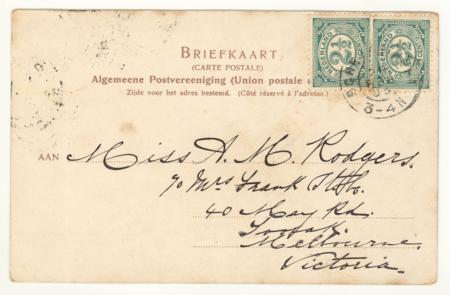 BRIEFKAART
(CARTE POSTALE)
Algemeene Postvereeniging (Union postale
Zijde voor het adres bestemd. (Côté réservé à l'adresse.)
NEDERLAND 2½
NEDERLAND 2½
3-4N
AAN Miss A. M. Rodgers.
c/o Mrs Frank
40 May Rd.
Toorak.
Melbourne.
Victoria.